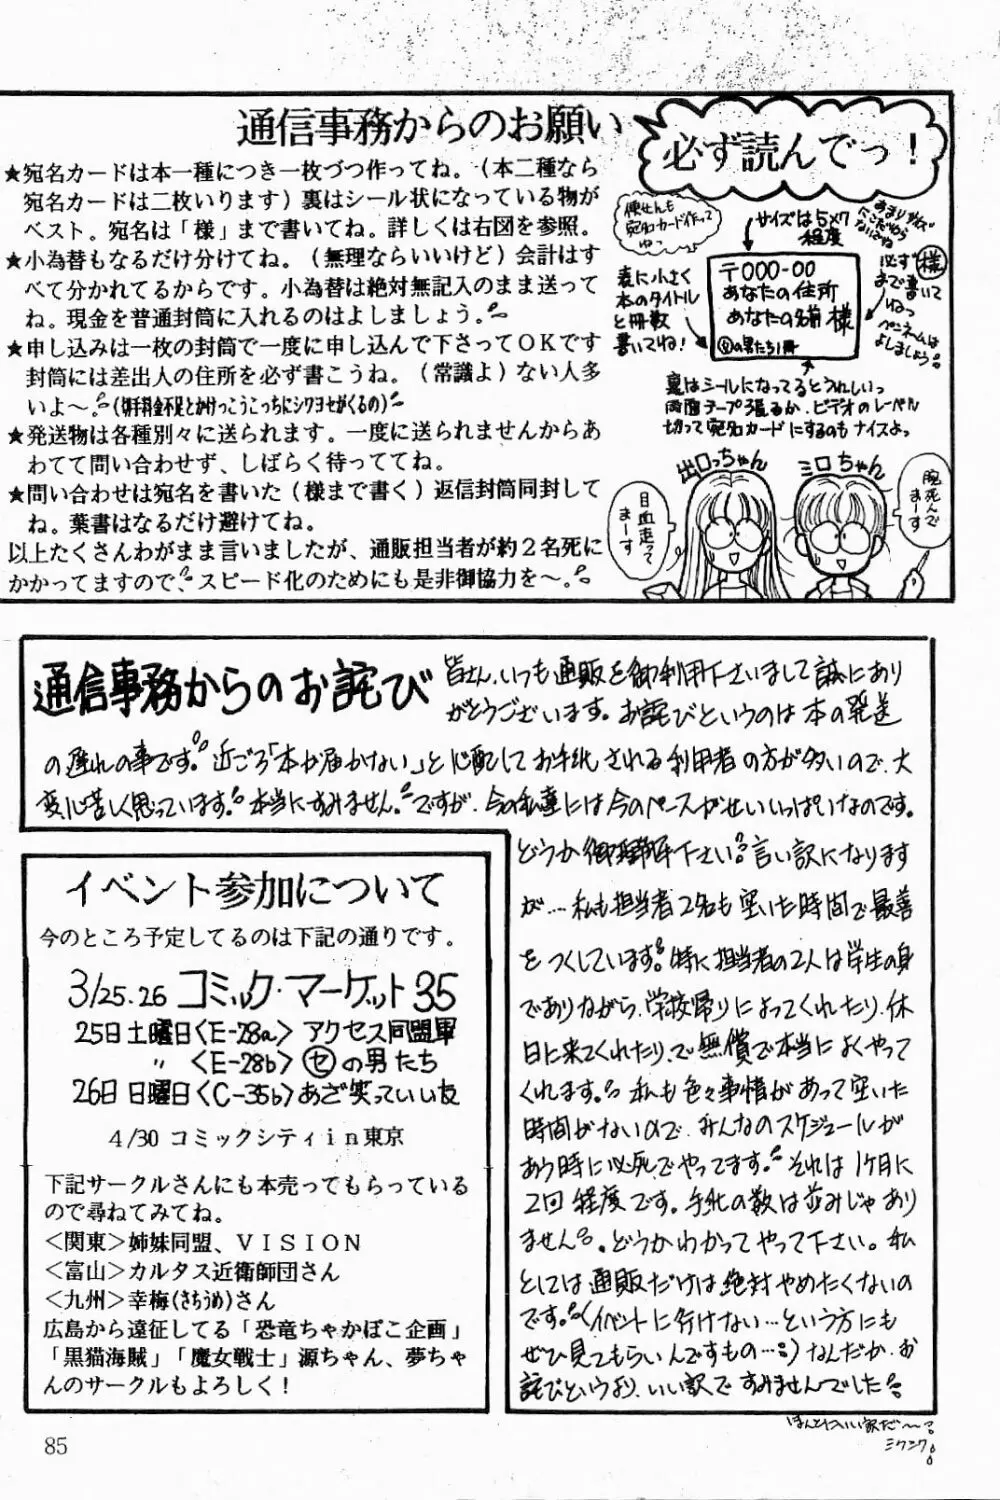 通信事務からのお願い
必ず読んでっ！
★宛名カードは本一種につき一枚づつ作ってね。（本二種なら
宛名カードは二枚いります）裏はシール状になっている物が
ベスト。宛名は「様」まで書いてね。詳しくは右図を参照。
★小為替もなるだけ分けてね。（無理ならいいけど）会計はす
べて分かれてるからです。小為替は絶対無記入のまま送って
ね。現金を普通封筒に入れるのはよしましょう。
★申し込みは一枚の封筒で一度に申し込んで下さってＯＫです
封筒には差出人の住所を必ず書こうね。（常識よ）ない人多
いよ～。(切手料金不足とかけっこうこっちにシワヨセがくるの)
★発送物は各種別々に送られます。一度に送られませんからあ
わてて問い合わせず、しばらく待っててね。
★問い合わせは宛名を書いた（様まで書く）返信封筒同封して
ね。葉書はなるだけ避けてね。
以上たくさんわがまま言いましたが、通販担当者が約２名死に
かかってますので、スピード化のためにも是非御協力を～。
便せんも
宛名カード作って
ねっ
サイズは5×7
程度
必ず様
まで書いて
ねっ
ペンネームは
よしましょう
表に小さく
本のタイトル
と冊数
書いてね！
〒000-00
あなたの住所
あなたの名前 様
の男たち1冊
裏はシールになってるとうれしいっ
両面テープ張るか、ビデオのレーベル
切って宛名カードにするのもナイスよっ
出口っちゃん
ミロちゃん
目血走って
まーす
腕死んで
まーす
通信事務からのお詫び
皆さん、いつも通販を御利用下さいまして誠にあり
がとうございます。お詫びというのは本の発送
の遅れの事です。近ごろ「本が届かない」と心配してお手紙される利用者の方が多いので、大
変心苦しく思っています。本当にすみません。ですが、今の私達には今のペースがせいいっぱいなのです。
どうか御理解下さい。言い訳になります
が…私も担当者2名も空いた時間で最善
をつくしています。特に担当者の2人は学生の身
でありながら、学校帰りによってくれたり、休
日に来てくれたり、で無償で本当によくやって
くれます。私も色々事情があって空いた
時間がないので、みんなのスケジュールが
あう時に必死でやってます。それは1ヶ月に
2回程度です。手紙の数は並みじゃあり
ません。どうかわかってやって下さい。私
としては通販だけは絶対やめたくないの
です。（イベントに行けない…という方にも
ぜひ見てもらいんですもの…）なんだか、お
詫びというより、いい訳ですみませんでした
ほんとにいい訳だ～
ミクンク
イベント参加について
今のところ予定してるのは下記の通りです。
3/25.26 コミック・マーケット35
25日土曜日〈E-28a〉アクセス同盟軍
〃 〈E-28b〉㋝の男たち
26日 日曜日〈C-35b〉あざ笑っていい友
４/30 コミックシティｉｎ東京
下記サークルさんにも本売ってもらっている
ので尋ねてみてね。
＜関東＞姉妹同盟、ＶＩＳＩＯＮ
＜富山＞カルタス近衛師団さん
＜九州＞幸梅(さちうめ)さん
広島から遠征してる「恐竜ちゃかぽこ企画」
「黒猫海賊」「魔女戦士」源ちゃん、夢ちゃ
んのサークルもよろしく！
85